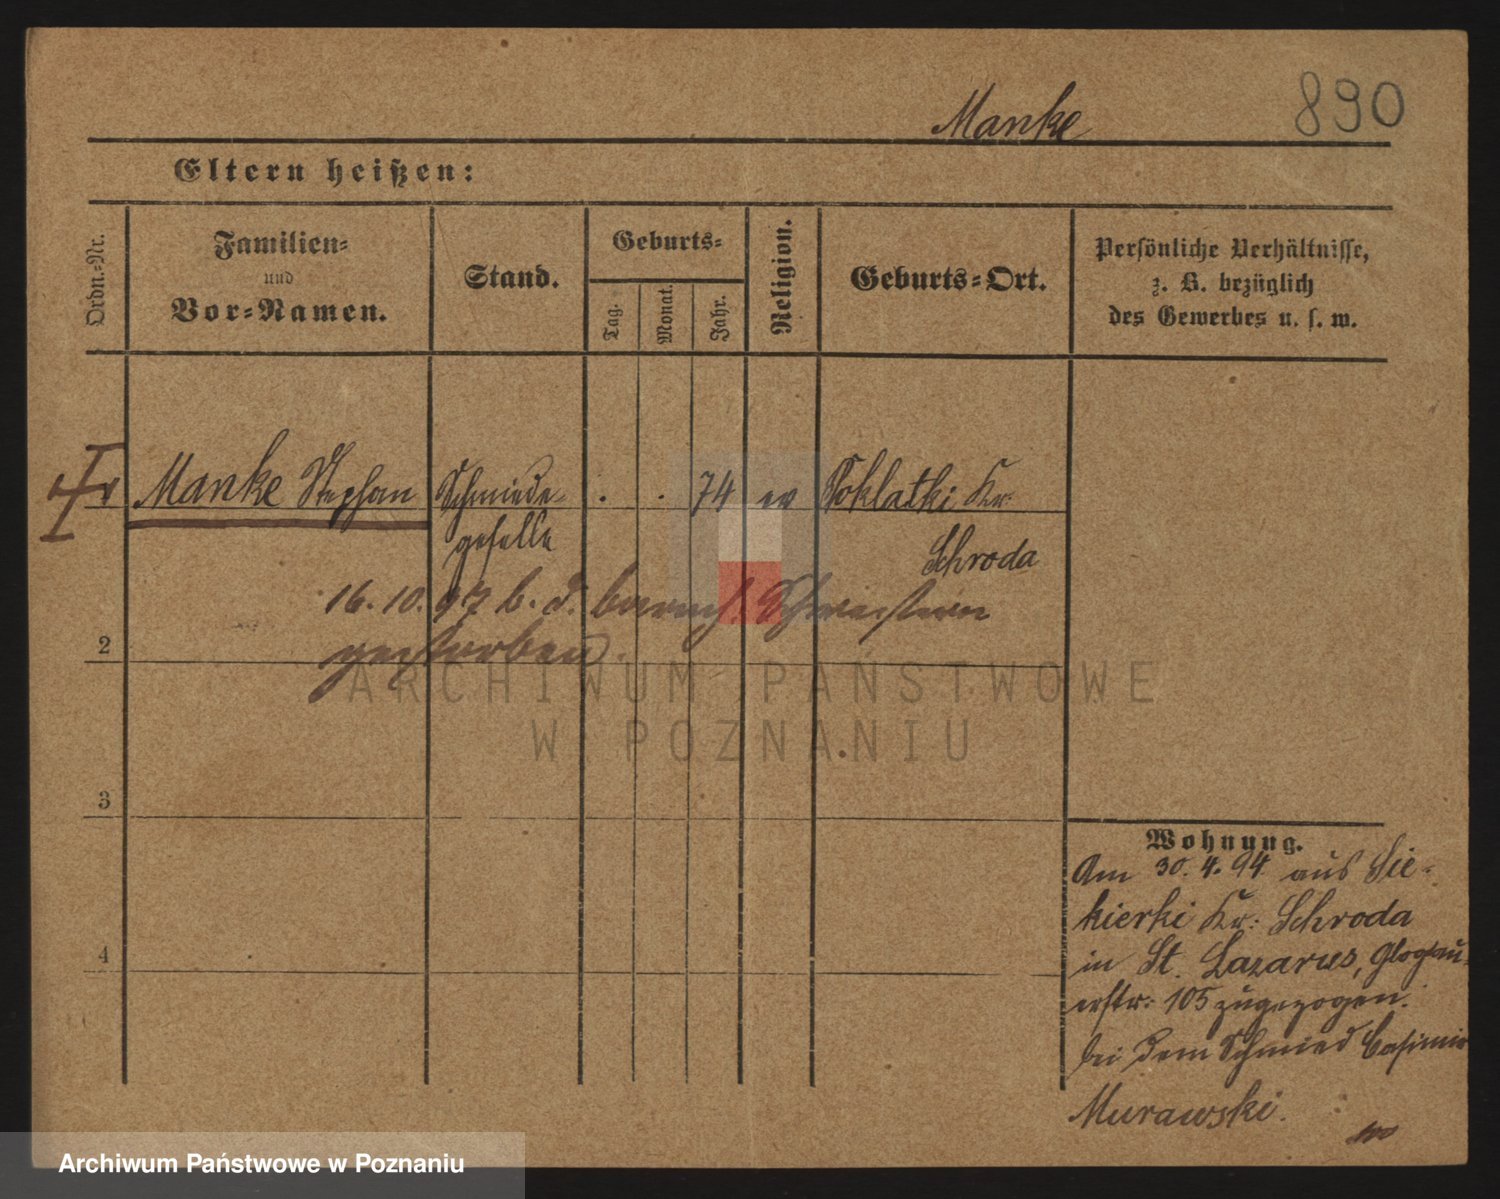 Manke 890
Eltern heißen:
Ordn.-Nr.
Familien-
und
Vor-Namen.
Stand.
Geburts-
Tag.
Monat.
Jahr.
Religion.
Geburts-Ort.
Persönliche Verhältnisse,
z. B. bezüglich
des Gewerbes u. s. w.
Manke Stephan Schmiede- . . 74 ev Poklatki Kr:
geselle Schroda
16. 10. 97 b. d. barmh. Schwestern
gestorben.
2
3
4
Wohnung.
Am 30. 4. 94 aus Sie-
kierki Kr: Schroda
in St. Lazarus, Glogau-
erstr: 105 zugezogen.
bei dem Schmied Casimir
Murawski.
ARCHIWUM PAŃSTWOWE
W POZNANIU
Archiwum Państwowe w Poznaniu